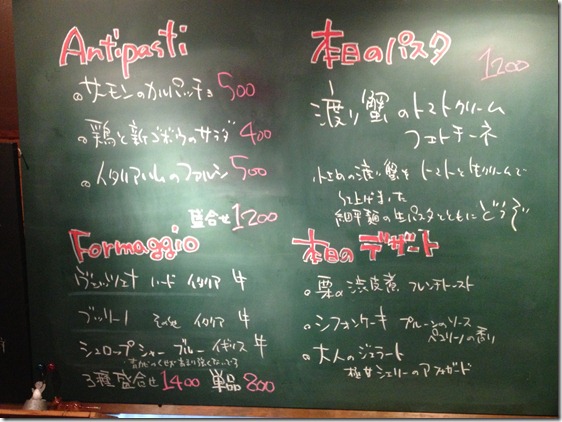 Antipasti
。サーモンのカルパッチョ 500
。鶏と新ゴボウのサラダ 400
。イタリアハムの 500
盛合せ 1200
Formaggio
ハード イタリア 牛
その他 イタリア 牛
シュロップシャー ブルー イギリス 牛
3種盛合せ 1400 単品 800
本日のパスタ
1200
渡り蟹のトマトクリーム
フェトチーネ
小さめの渡り蟹をトマトと生クリームで
仕上げました
細平麺の生パスタとともにどうぞ
本日のデザート
。栗の渋皮煮 フレンチトースト
。シフォンケーキ プルーンのソース
の香り
。大人のジェラート
極甘シェリーのアフォガード